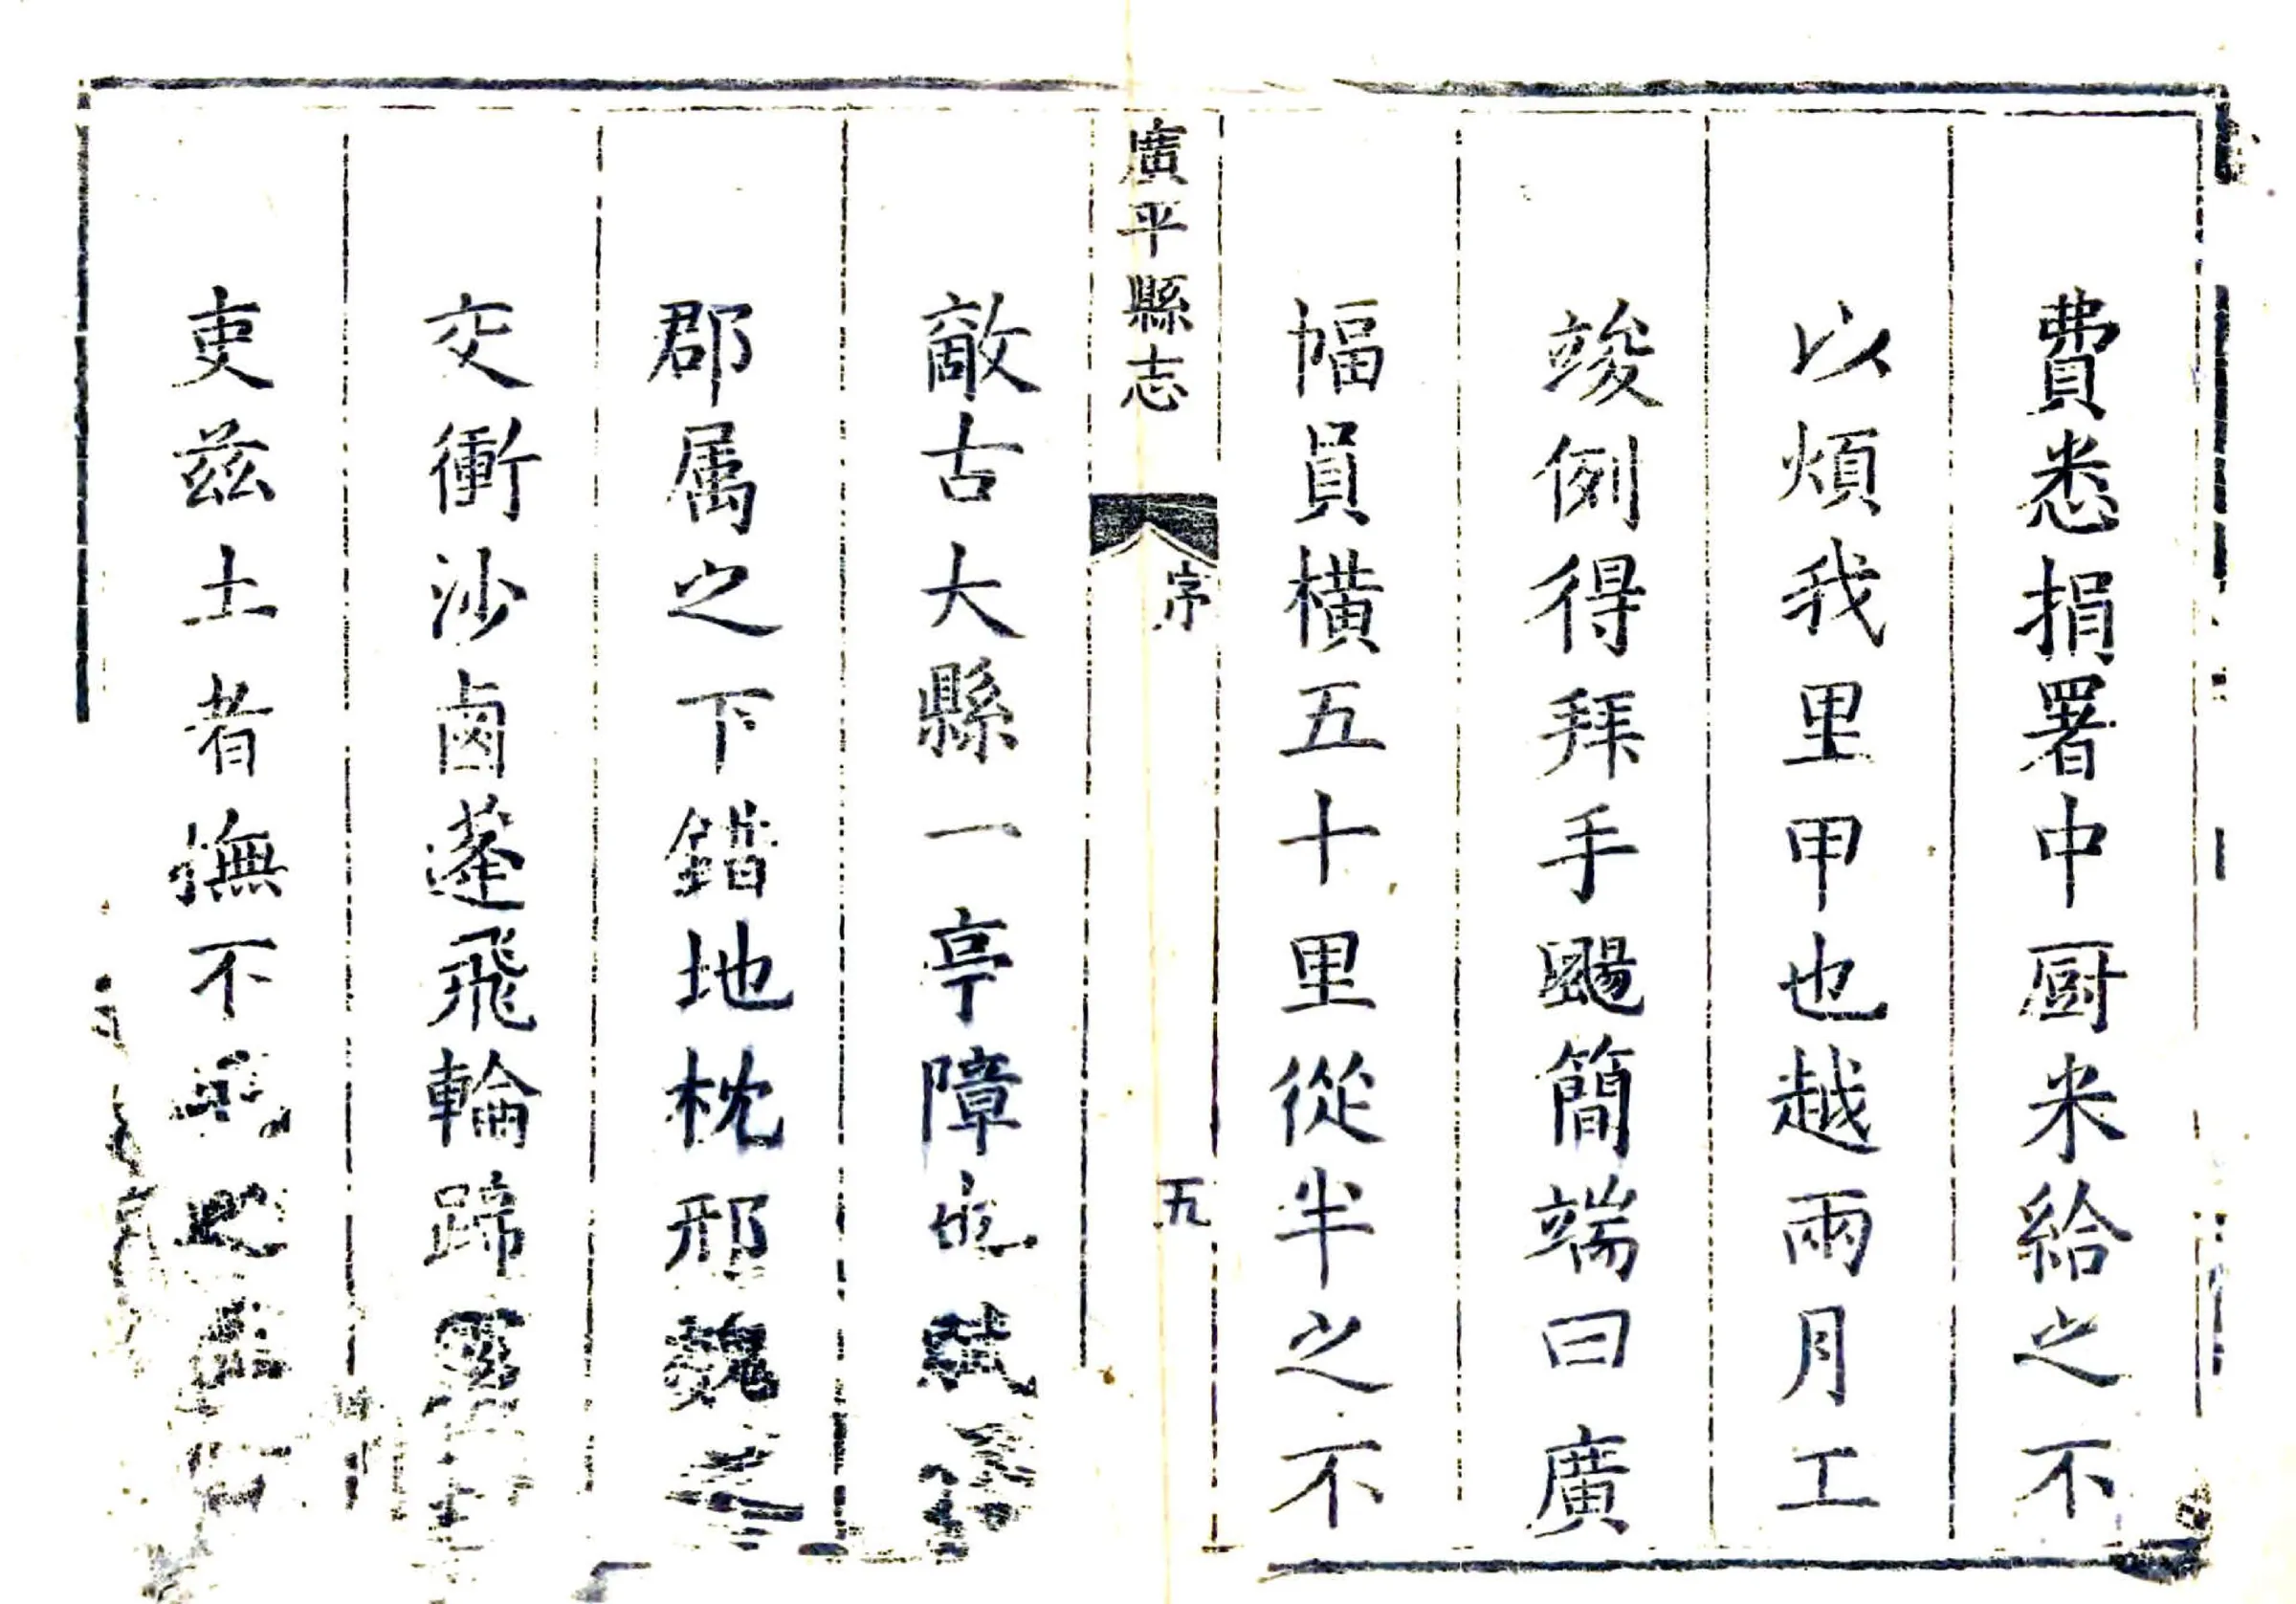 費悉捐署中厨米給之不
以煩我里甲也越兩月工
竣例得拜手颺簡端曰廣
幅員橫五十里從半之不
廣平縣志
序
五
敵古大縣一亭障也
郡属之下錯地枕邢魏之
交衝沙鹵蓬飛輪蹄
吏兹土者撫不